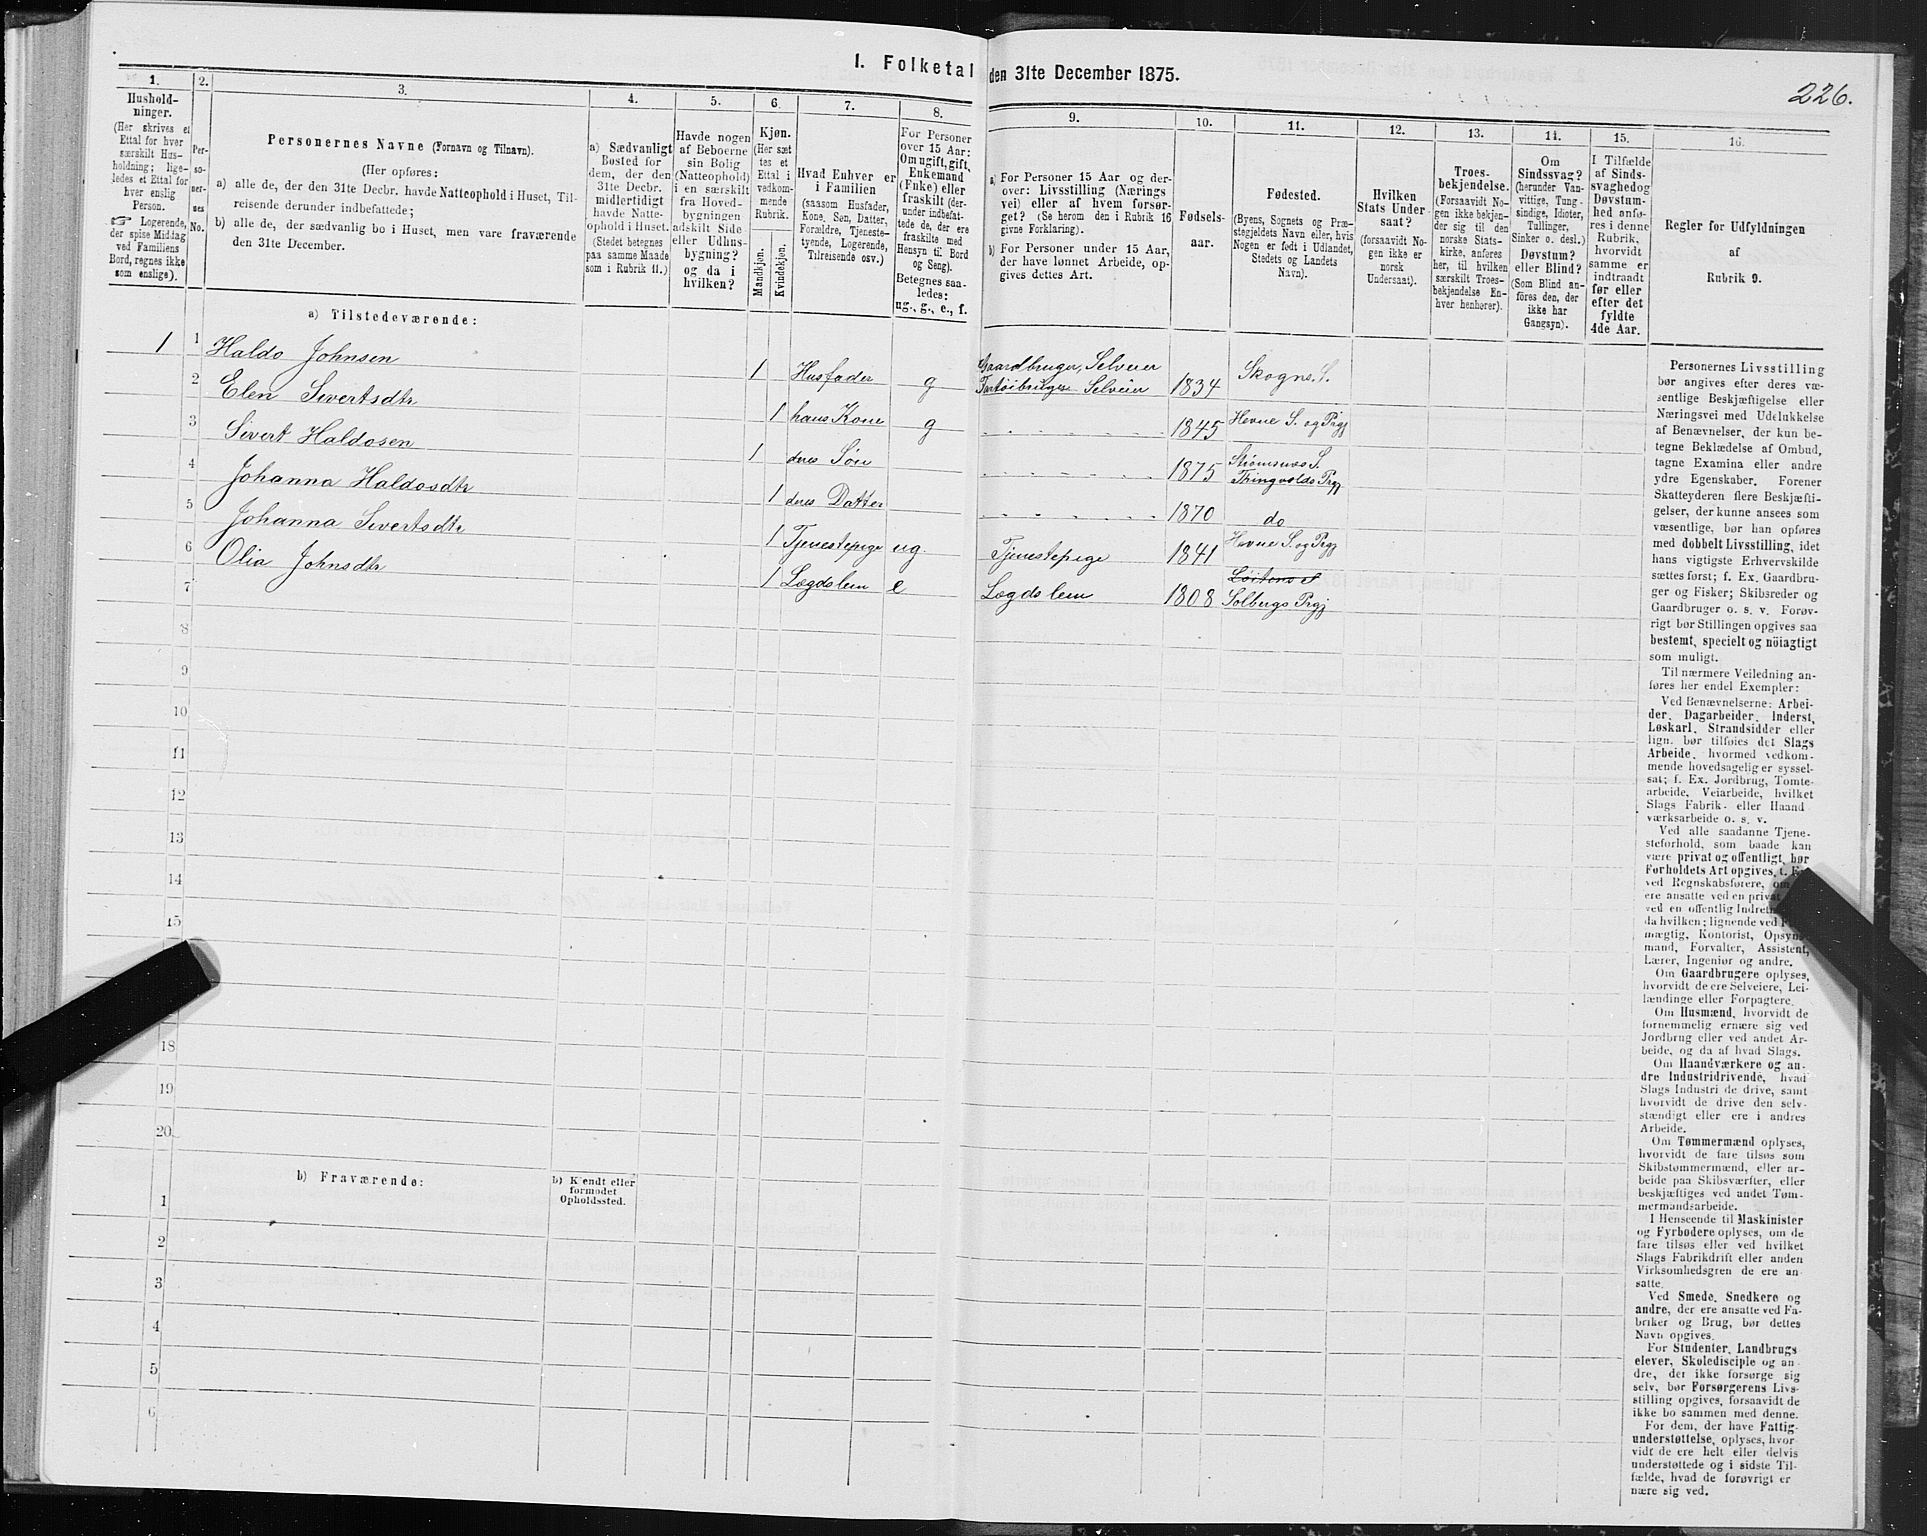 I. Folketal den 31te December 1875.
226.
1.
Hushold-
ninger.
(Her skrives et
Ettal for hver
særskilt Hus-
holdning; lige-
ledes et Ettal for
hver enslig
Person.
☞ Logerende,
der spise Middag
ved Familiens
Bord, regnes ikke
som enslige).
2.
Per-
so-
ner-
nes
No.
3.
Personernes Navne (Fornavn og Tilnavn).
(Her opføres:
a) alle de, der den 31te Decbr. havde Natteophold i Huset, Til-
reisende derunder indbefattede;
b) alle de, der sædvanlig bo i Huset, men vare fraværende
den 31te December.
4.
a) Sædvanligt
Bosted for
dem, der den
31te Decbr.
midlertidigt
havde Natte-
ophold i Huset.
(Stedet betegnes
paa samme Maade
som i Rubrik 11.)
5.
Havde nogen
af Beboerne
sin Bolig
(Natteophold)
i en særskilt
fra Hoved-
bygningen
adskilt Side-
eller Udhus-
bygning?
og da i
hvilken?
6.
Kjøn.
(Her sæt
tes et
Ettal i
vedkom-
mende
Rubrik.
Mandkjøn.
Kvindekjøn.
7.
Hvad Enhver er
i Familien
(saasom Husfader,
Kone, Søn, Datter,
Forældre, Tjeneste-
tyende, Logerende,
Tilreisende osv.)
8.
For Personer
over 15 Aar:
Om ugift, gift,
Enkemand
(Enke) eller
fraskilt (der-
under indbefat-
tede de, der ere
fraskilte med
Hensyn til Bord
og Seng).
Betegnes saa-
ledes:
ug., g., e., f.
9.
a) For Personer 15 Aar og der-
over: Livsstilling (Nærings
vei) eller af hvem forsør-
get? (Se herom den i Rubrik 16
givne Forklaring).
b) For Personer under 15 Aar,
der have lønnet Arbeide, op-
gives dettes Art.
10.
Fødsels-
aar.
11.
Fødested.
(Byens, Sognets og Præ-
stegjeldets Navn eller, hvis
Nogen er født i Udlandet,
Stedets og Landets
Navn).
12.
Hvilken
Stats Under-
saat?
(forsaavidt No-
gen ikke er
norsk
Undersaat).
13.
Troes-
bekjendelse.
(Forsaavidt No-
gen ikke bekjen-
der sig til den
norske Stats-
kirke, anføres
her, til hvilken
særskilt Troes-
bekjendelse En-
hver henhører).
14.
Om
Sindssvag?
(herunder Van-
vittige, Tung-
sindige, Idioter,
Tullinger,
Sinker o. desl.)
Døvstum?
eller Blind?
(Som Blind an-
føres den, der
ikke har
Gangsyn).
15.
I Tilfælde
af Sinds-
svaghed og
Døvstum-
hed anfø-
res i denne
Rubrik,
hvorvidt
samme er
indtraadt
før eller
efter det
fyldte
4de Aar.
16.
Regler for Udfyldningen
af
Rubrik 9.
a) Tilstedeværende:
1 1 Haldo Johnsen 1 Husfader g Gaardbruger, Selveier
Selveier 1834 Skogns S.
2 Elen Sivertsdtr 1 hans Kone g 1845 Hevne S. og Prgj
3 Sivert Haldosen 1 deres Søn 1875 Strømsnes S.
Thingvolds Prgj.
4 Johanna Haldosdtr 1 deres Datter 1870 do
5 Johanna Sivertsdtr 1 Tjenestepige ug. Tjenestepige 1841 Hevne S. og Prgj
6 Olia Johnsdtr 1 Lægdslem e Lægdslem 1808
Solbergs Prgj
7
8
9
10
11
12
13
14
15
18
19
20
b) Fraværende:
b) Kjendt eller
formodet
Opholdssted.
1
2
3
4
5
6
Personernes Livsstilling
bør angives efter deres væ-
sentlige Beskjæftigelse eller
Næringsvei med Udelukkelse
af Benævnelser, der kun be-
tegne Beklædelse af Ombud,
tagne Examina eller andre
ydre Egenskaber. Forener
Skatteyderen flere Beskjæfti-
gelser, der kunne ansees som
væsentlige, bør han opføres
med dobbelt Livsstilling, idet
hans vigtigste Erhvervskilde
sættes først; f. Ex. Gaardbru-
ger og Fisker; Skibsreder og
Gaardbruger o. s. v. Forøv-
rigt bør Stillingen opgives saa
bestemt, specielt og nöiagtigt
som muligt.
Til nærmere Veiledning an-
føres her endel Exempler:
Ved Benævnelserne: Arbei-
der, Dagarbeider, Inderst,
Løskarl, Strandsidder eller
lign. bør tilføies det Slags
Arbeide, hvormed vedkom-
mende hovedsagelig er syssel-
sat; f. Ex. Jordbrug, Tomte-
arbeide, Veiarbeide, hvilket
Slags Fabrik- eller Haand
værksarbeide o. s. v.
Ved alle saadanne Tjene-
steforhold, som baade kan
være privat og offentligt, bør
Forholdets Art opgives, f. Ex.
ved Regnskabsførere, om
ere ansatte ved en privat
ved en offentlig Indret
da hvilken; lignende ved
mægtig, Kontorist, Opsyns-
mand, Forvalter, Assistent,
Lærer, Ingeniør og andre.
Om Gaardbrugere oplyses,
hvorvidt de ere Selveiere, Lei-
lændinge eller Forpagtere.
Om Husmænd, hvorvidt de
fornemmelig ernære sig ved
Jordbrug eller ved andet Ar-
beide, og da af hvad Slags.
Om Haandværkere og an-
dre Industridrivende, hvad
Slags Industri de drive, samt
hvorvidt de drive den selv-
stændigt eller ere i andres
Arbeide.
Om Tømmermænd oplyses,
hvorvidt de fare tilsøs som
Skibstømmermænd, eller ar-
beide paa Skibsværfter, eller
beskjæftiges ved andet Tøm-
mermandsarbeide.
I Henseende til Maskinister
og Fyrbødere oplyses, om de
fare tilsøs eller ved hvilket
Slags Fabrikdrift eller anden
Virksomhedsgren de ere an-
satte.
Ved Smede, Snedkere og
andre, der ere ansatte ved Fa-
briker og Brug, bør dettes
Navn opgives.
For Studenter, Landbrugs
elever, Skoledisciple og an-
dre, der ikke forsørge sig
selv, bør Forsørgerens Livs-
stilling opgives, forsaavidt de
ikke bo sammen med denne.
For dem, der have Fattig-
understøttelse, oplyses, hvor-
vidt de ere helt eller delvis
understøttede og i sidste Til-
fælde, hvad de forøvrigt er
nære sig ved.